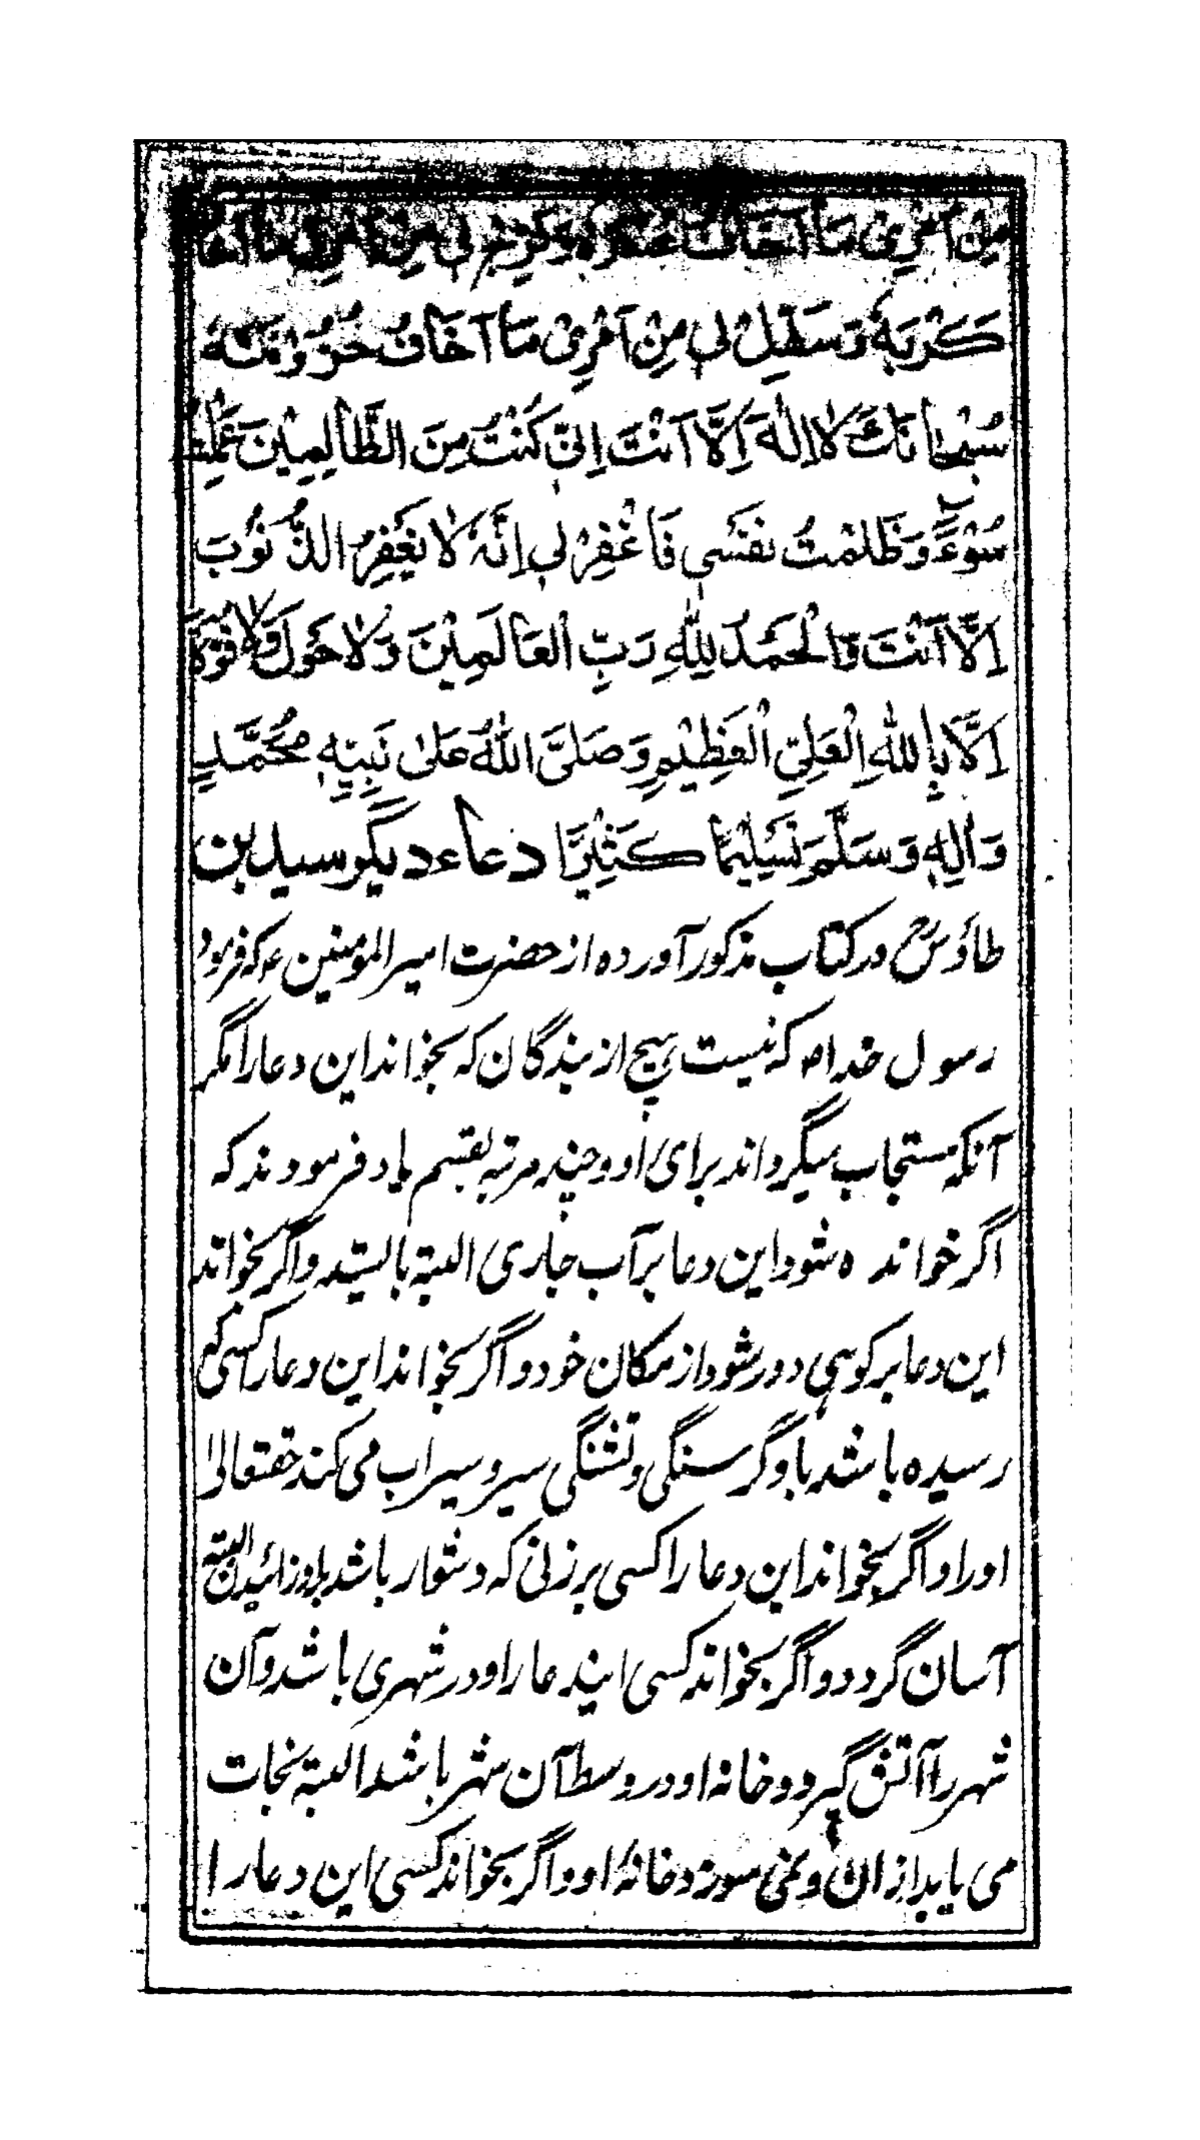 مِنْ اَمْرِیْ مَا اَخَافُ عُسْرَهٗ وَفَرِّجْ لِیْ مِنْ اَمْرِیْ مَا اَخَافُ
کَرْبَهٗ وَسَهِّلْ لِیْ مِنْ اَمْرِیْ مَا اَخَافُ حُزُوْنَتَهٗ
سُبْحَانَكَ لَا اِلٰهَ اِلَّا اَنْتَ اِنِّیْ کُنْتُ مِنَ الظَّالِمِیْنَ عَمِلْتُ
سُوْءً وَظَلَمْتُ نَفْسِیْ فَاغْفِرْ لِیْ اِنَّهٗ لَا یَغْفِرُ الذُّنُوْبَ
اِلَّا اَنْتَ وَالْحَمْدُ لِلّٰهِ رَبِّ الْعَالَمِیْنَ وَلَا حَوْلَ وَلَا قُوَّةَ
اِلَّا بِاللّٰهِ الْعَلِیِّ الْعَظِیْمِ وَصَلَّی اللّٰهُ عَلٰی نَبِیِّهٖ مُحَمَّدٍ
وَاٰلِهٖ وَسَلَّمَ تَسْلِیْمًا کَثِیْرًا دعاء دیگر سید بن
طاؤس در کتاب مذکور آورده از حضرت امیر المؤمنین ع که فرمود
رسول خدا ص که نیست هیچ از بندگان که بخواند این دعا را مگر
آنکه مستجاب میگرداند برای او و چند مرتبه بقسم یاد فرمودند که
اگر خوانده شود این دعا بر آب جاری البته باایستد و اگر بخواند
این دعا بر کوهی دور شود از مکان خود و اگر بخواند این دعا را کسی که
رسیده باشد باو گرسنگی و تشنگی سیر و سیراب می کند حقتعالیٰ
او را و اگر بخواند این دعا را کسی بر زنی که دشوار باشد باو زائیدن البته
آسان گردد و اگر بخواند کسی ایندعا را و در شهری باشد و آن
شهر را آتش گیرد و خانه او در وسط آن شهر باشد البته نجات
می یابد از ان و نمی سوزد خانهٔ او و اگر بخواند کسی این دعا را